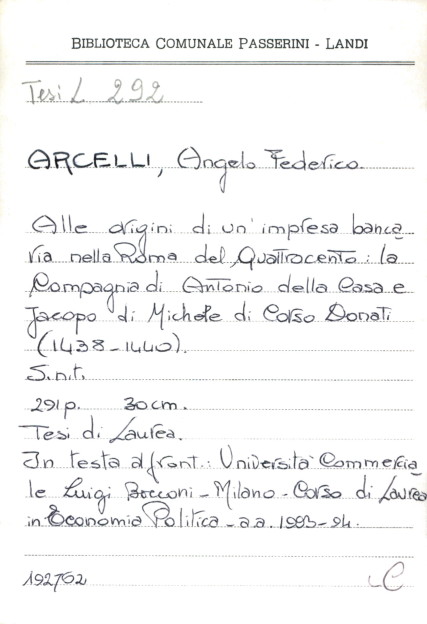 BIBLIOTECA COMUNALE PASSERINI - LANDI
Tesi L 292
ARCELLI, Angelo Federico.
Alle origini di un' impresa banca
ria nella Roma del Quattrocento: la
Compagnia di Antonio della Casa e
Jacopo di Michele di Corso Donati
(1438-1440).
S.n.t.
291 p. 30 cm.
Tesi di Laurea.
In testa al front.: Università Commercia
le Luigi Bocconi - Milano - Corso di Laurea
in Economia Politica - a.a. 1993-94.
192762
C